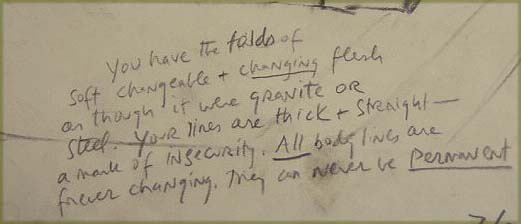 You have the folds of
soft changeable + changing flesh
as though it were granite or
steel. Your lines are thick + straight—
a mark of insecurity. All body lines are
forever changing. They can never be permanent